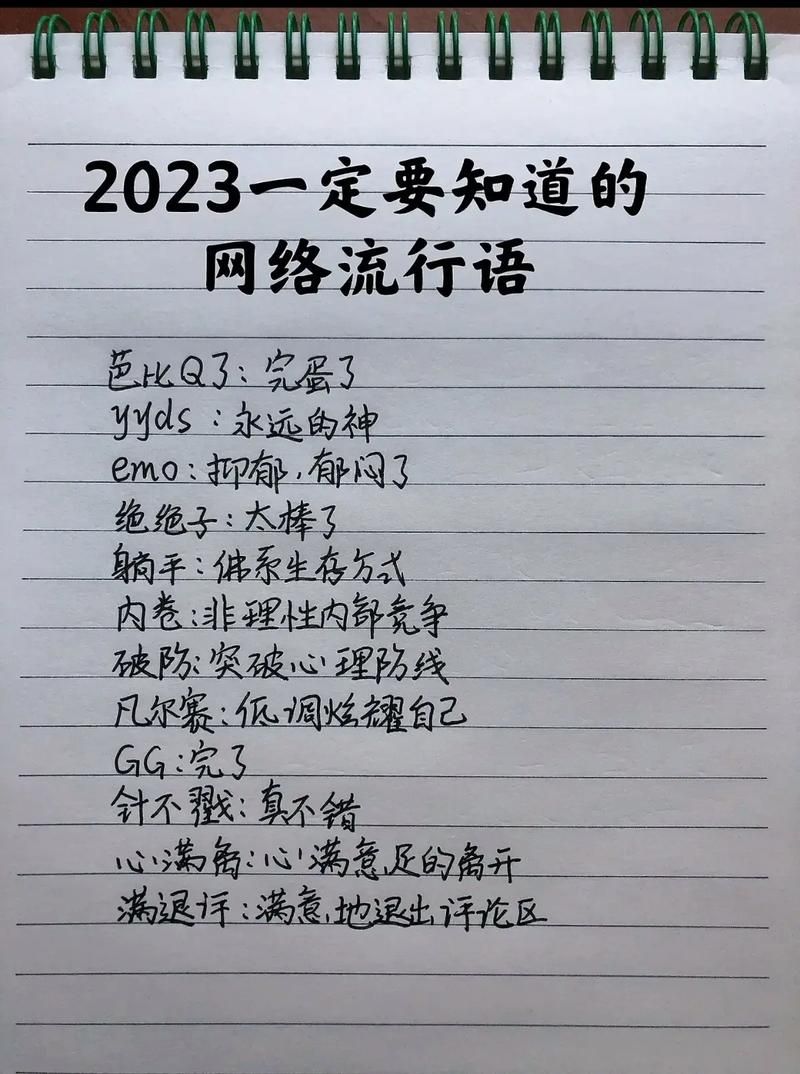 2023一定要知道的
网络流行语
芭比Q了：完蛋了
yyds：永远的神
emo：抑郁，郁闷了
绝绝子：太棒了
躺平：佛系生存方式
内卷：非理性内部竞争
破防：突破心理防线
凡尔赛：低调炫耀自己
GG：完了
针不戳：真不错
心满离：心满意足的离开
满退评：满意地退出评论区